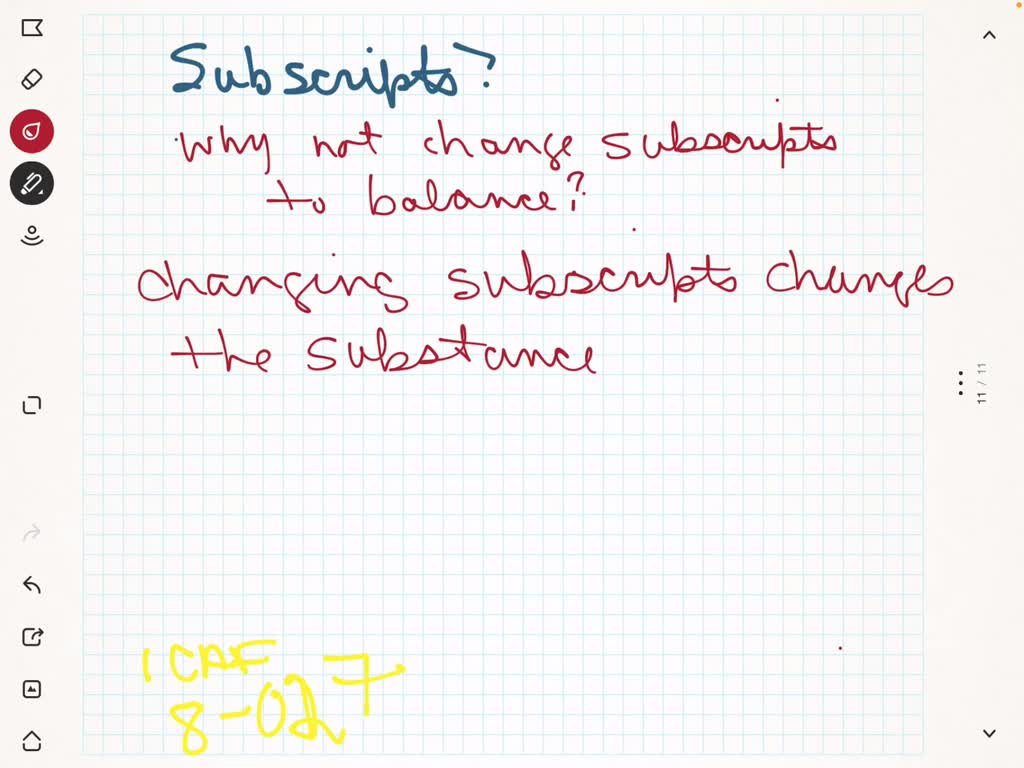 Subscripts?
why not change subscripts
to balance?
changing subscripts changes
the substance
11 / 11
1 CAF
8-027